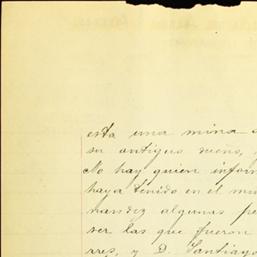 esta una mina
su antiguo dueno,
No hay quien infor
haya tenido en el mu
nandez algunas pe
ser las que fueron
rres, y D. Santiago